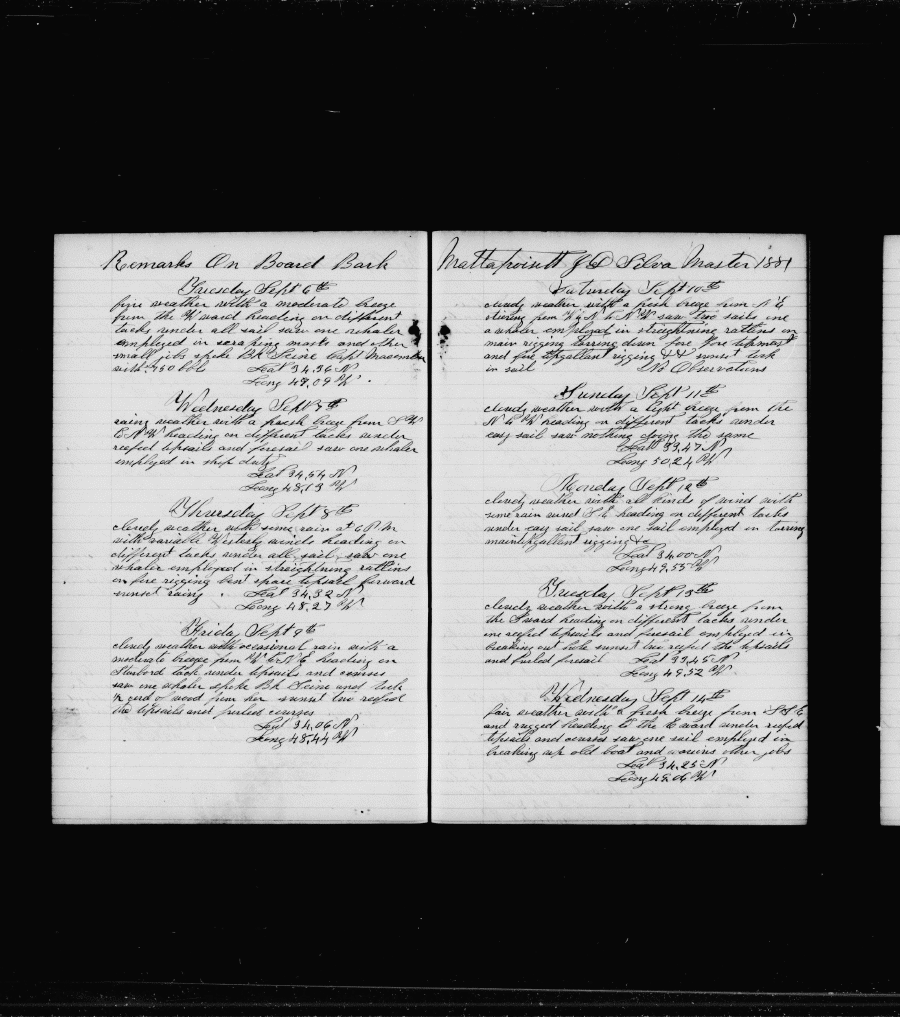 Remarks On Board Bark
Tuesday Sept 6th
fine weather with a moderate breeze
from the W ward heading on different
tacks under all sail saw one whaler
employed in scraping masts and other
small jobs spoke Bk Seine Capt Macomber
with 750 bbls Lat 34,36 N
Long 49,09 W
Wednesday Sept 7th
rainy weather with a fresh breeze from S W
to N W heading on different tacks under
reefed topsails and foresail saw one whaler
employed in ships duty
Lat 34,54 N
Long 48,13 W
Thursday Sept 8th
cloudy weather with some rain at 6 P M
with variable Westerly winds heading on
different tacks under all sail, saw one
whaler employed in straightning ratlins
on fore rigging bent spare topsail forward
sunset rainy. Lat 34,32 N
Long 48,27 W
Friday Sept 9th
cloudy weather with occasional rain with a
moderate breeze from W to N E heading on
Starbord tack under topsails and courses
saw one whaler spoke Bk Seine and took
cord of wood from her sunset two reefed
the topsails and furled courses
Lat 34,06 N
Long 48,44 W
Mattapoisett J D Silva Master 1881
Saturday Sept 10th
cloudy weather with a fresh breeze from N E
stering from W by N to N W saw two sails one
a whaler employed in straightning ratlins on
main rigging tarring down fore fore topmast
and fore topgallant rigging &c sunset took
in sail No Observations
Sunday Sept 11th
cloudy weather with a light breeze from the
N to W heading on different tacks under
easy sail saw nothing doing the same
Lat 33,47 N
Long 50,24 W
Monday Sept 12th
cloudy weather with all kinds of wind with
some rain wind S E heading on different tacks
under easy sail saw one sail employed in tarring
maintopgallant rigging &c
Lat 34,00 N
Long 49,55 W
Tuesday Sept 13th
cloudy weather with a strong breeze from
the S ward heading on different tacks under
one reefed topsails and foresail employed in
breaking out hole sunset two reefed the topsails
and furled foresail Lat 33,45 N
Long 49,52 W
Wednesday Sept 14th
fair weather with a fresh breeze from S S E
and rugged heading to the E ward under reefed
topsails and courses saw one sail employed in
breaking up old boat and various other jobs
Lat 34,25 N
Long 49,06 W